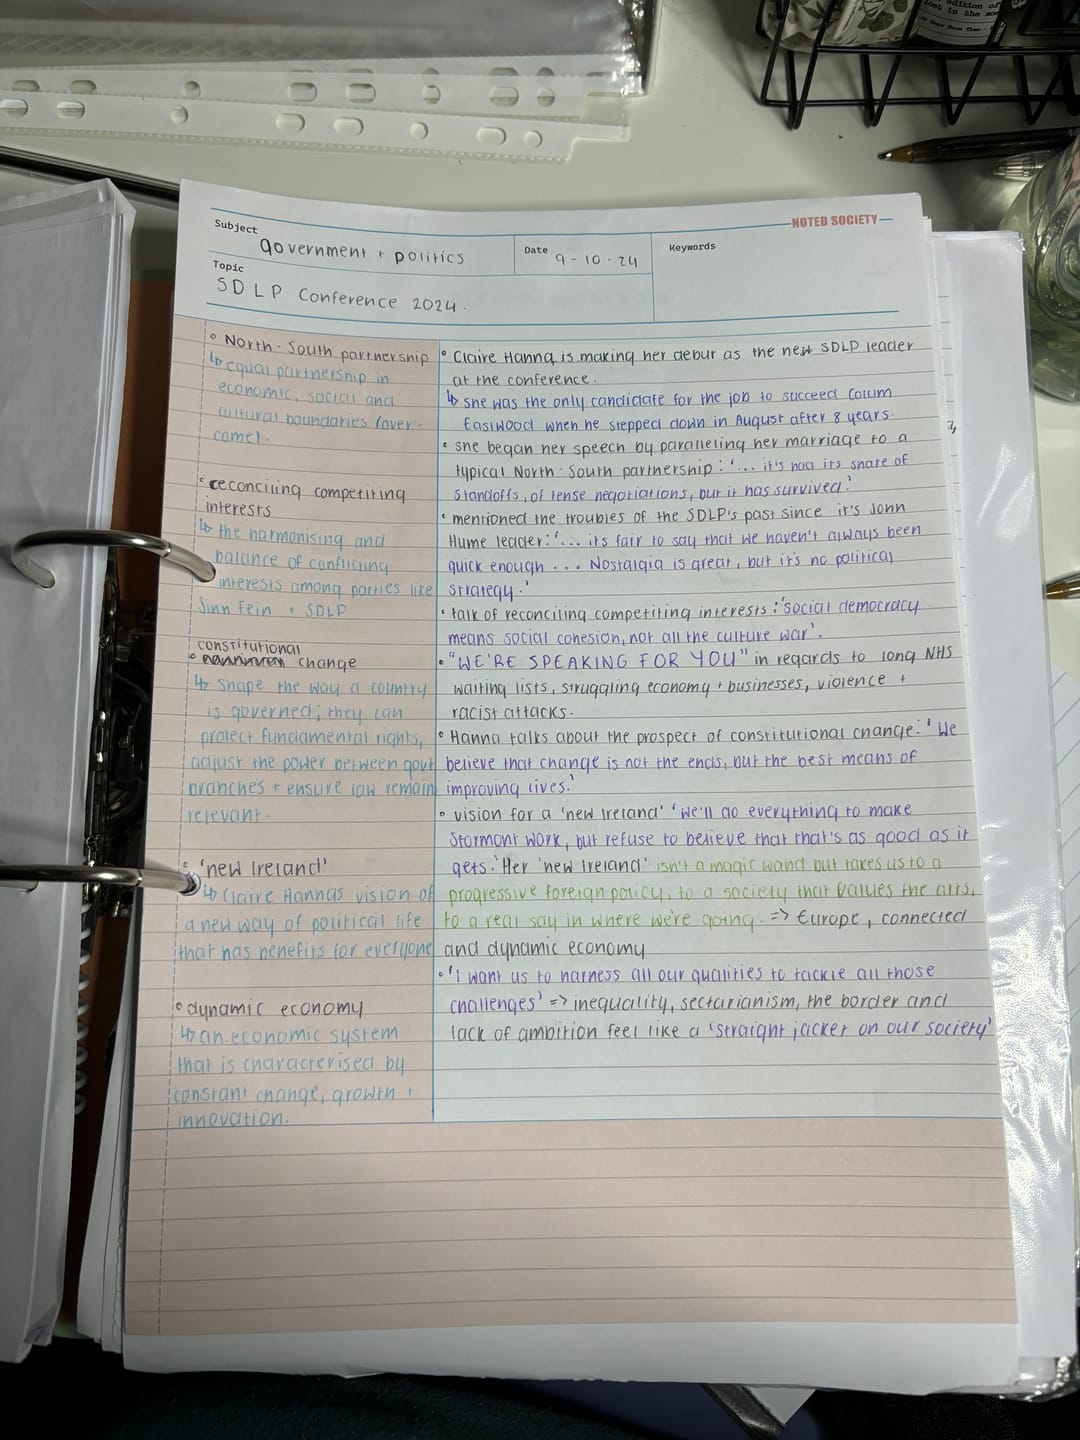 edition of
lost in the
NOTED SOCIETY
Subject
government + politics
Date 9-10-24
Keywords
Topic
SDLP Conference 2024.
° North-South partnership
↳ equal partnership in
economic, social and
cultural boundaries (over-
come).
° reconciling competiting
interests
↳ the harmonising and
balance of conflicting
interests among parties like
Sinn Fein + SDLP
constitutional
° change
↳ shape the way a country
is governed; they can
protect fundamental rights,
adjust the power between govt
branches + ensure law remain
relevant.
° 'new Ireland'
↳ Claire Hannas vision of
a new way of political life
that has benefits for everyone
° dynamic economy
↳ an economic system
that is characterised by
constant change, growth +
innovation.
° Claire Hanna is making her debut as the new SDLP leader
at the conference.
↳ she was the only candidate for the job to succeed Colum
Eastwood when he stepped down in August after 8 years.
• she began her speech by paralleling her marriage to a
typical North-South partnership: '... it's had its share of
standoffs, of tense negotiations, but it has survived.'
• mentioned the troubles of the SDLP's past since it's John
Hume leader: '... its fair to say that we haven't always been
quick enough ... Nostalgia is great, but it's no political
strategy.'
• talk of reconciling competiting interests: 'social democracy
means social cohesion, not all the culture war'.
• "WE'RE SPEAKING FOR YOU" in regards to long NHS
waiting lists, struggling economy + businesses, violence +
racist attacks.
° Hanna talks about the prospect of constitutional change: 'We
believe that change is not the ends, but the best means of
improving lives.'
° vision for a 'new Ireland' 'we'll do everything to make
Stormont work, but refuse to believe that that's as good as it
gets.' Her 'new Ireland' isn't a magic wand but takes us to a
progressive foreign policy, to a society that values the arts,
to a real say in where we're going. => Europe, connected
and dynamic economy
• 'I want us to harness all our qualities to tackle all those
challenges' => inequality, sectarianism, the border and
lack of ambition feel like a 'straight jacket on our society'